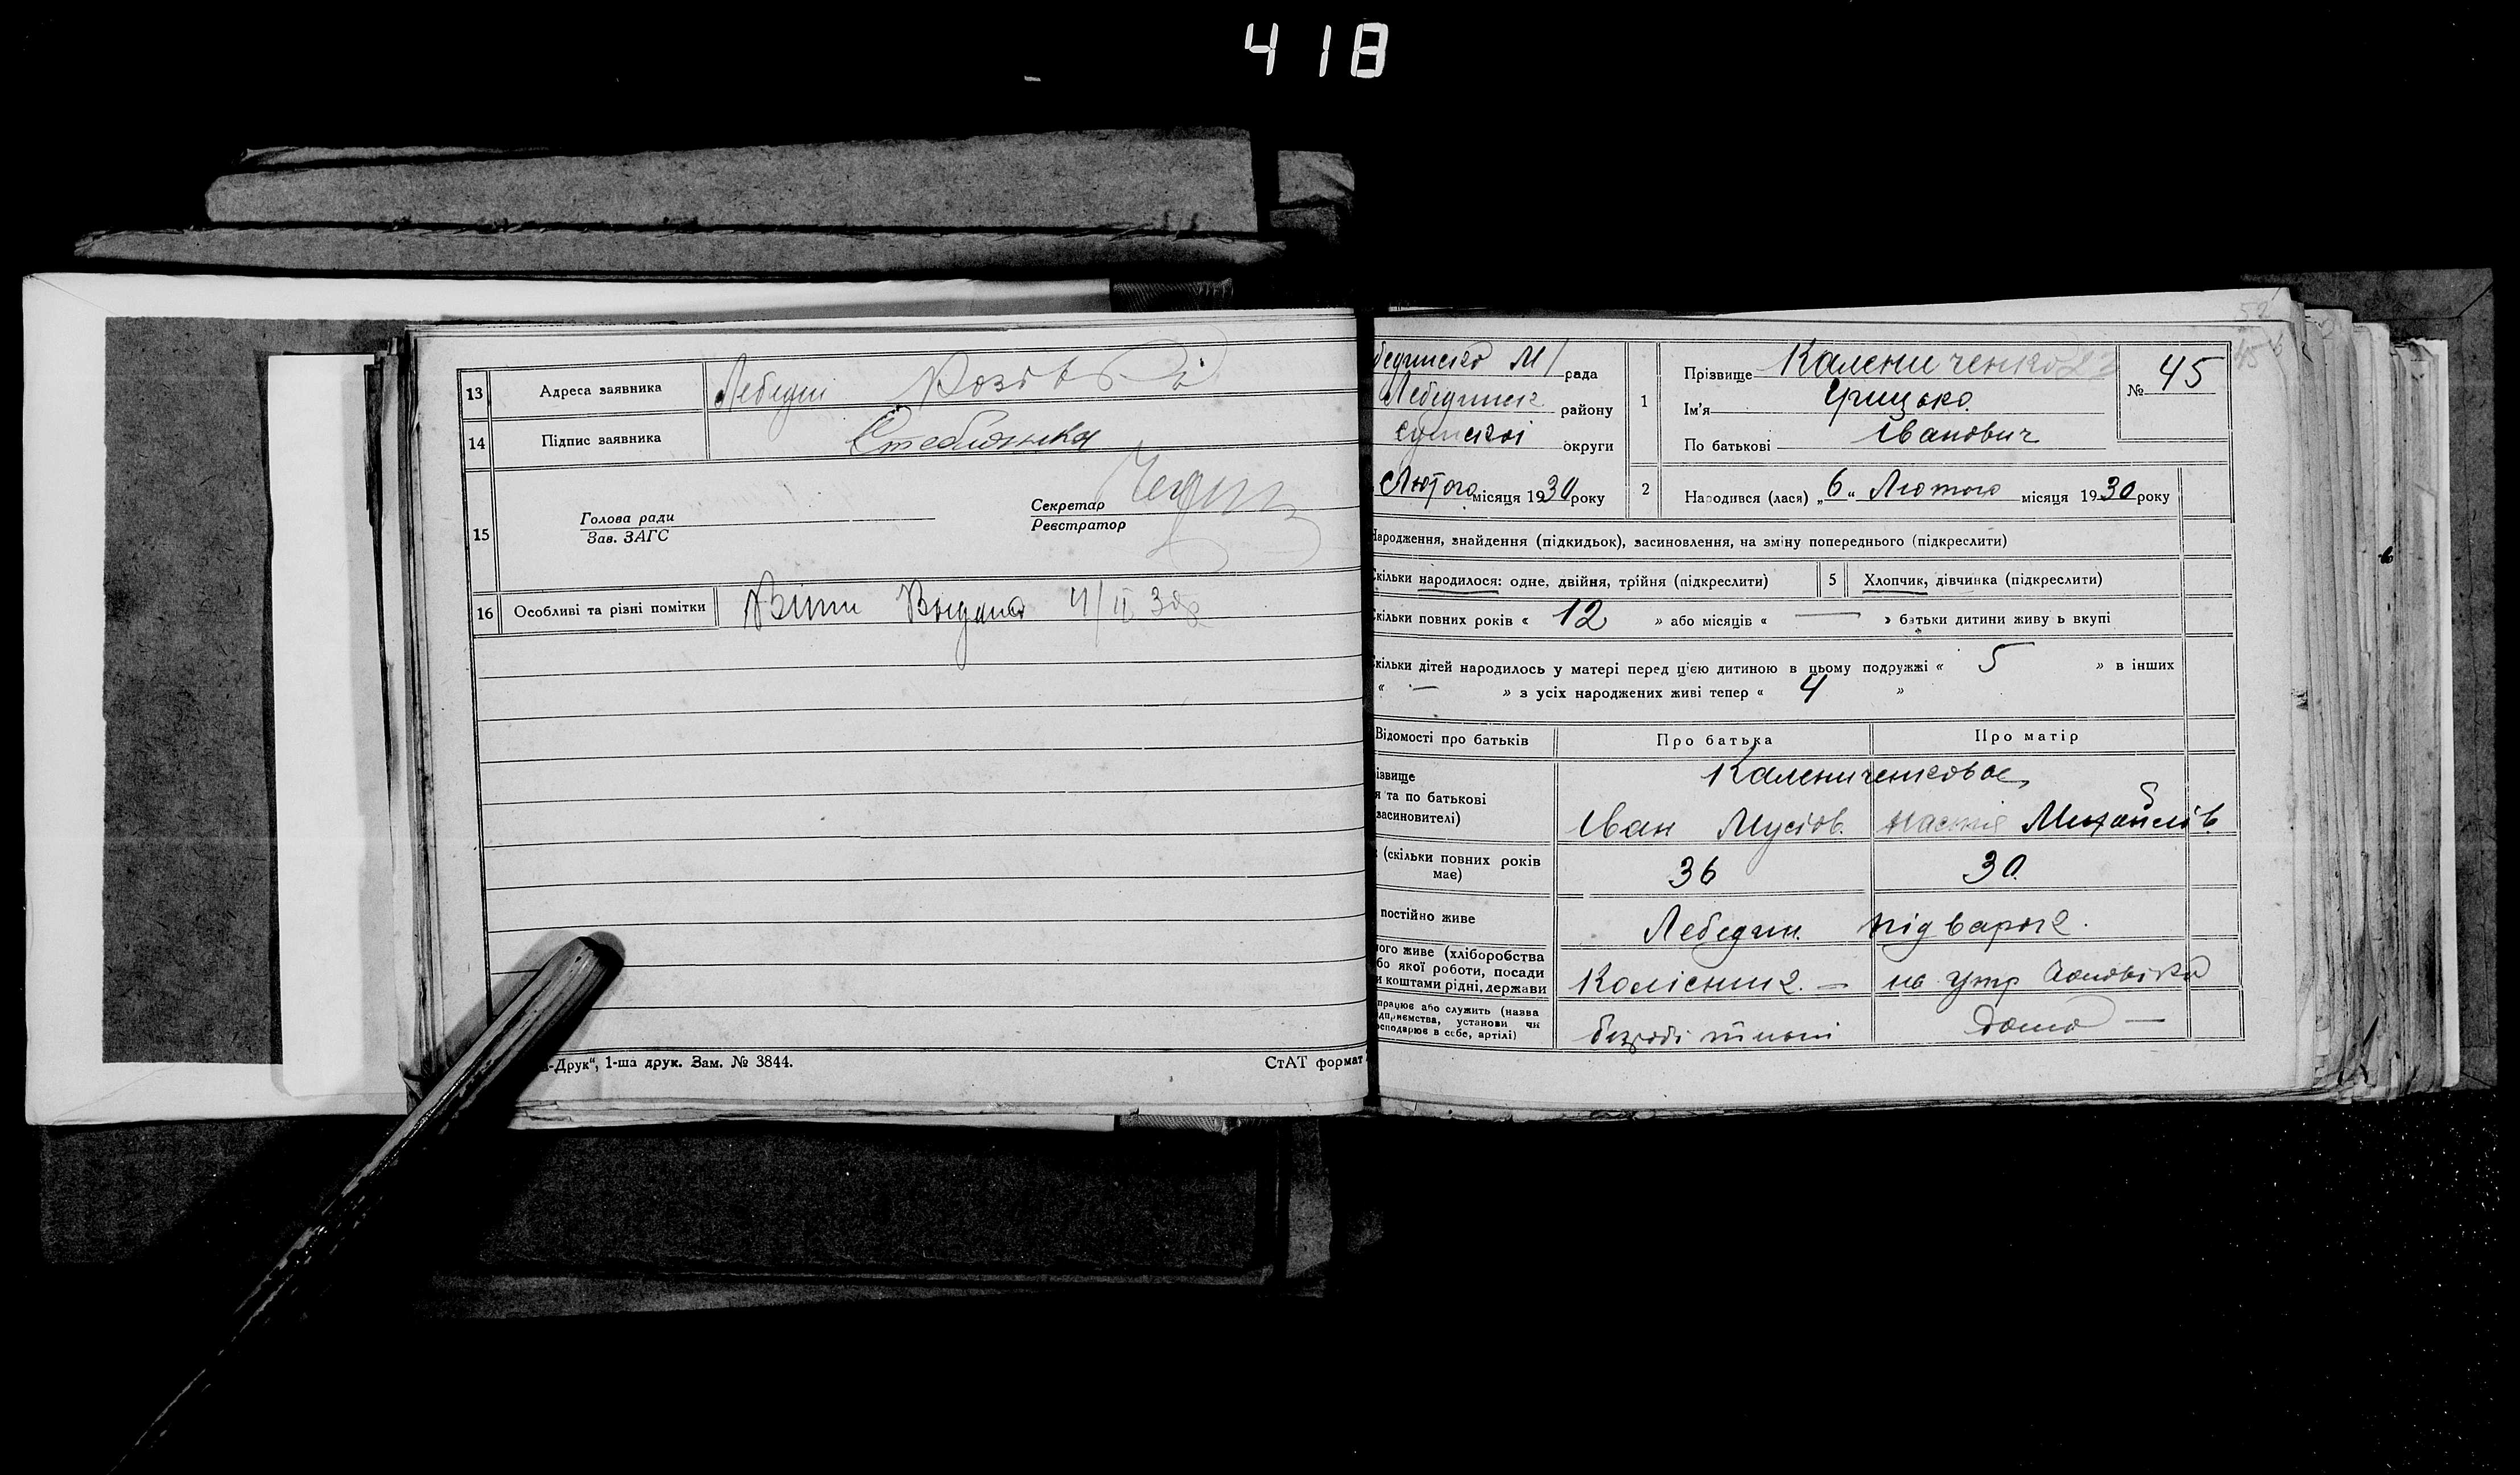 418
13 Адреса заявника Лебедин
14 Підпис заявника
15 Голова ради Секретар
Зав. ЗАГС Реєстратор
16 Особливі та різні помітки
-Друк“, 1-ша друк. Зам. № 3844. СтАТ формат
52
45
рада
Лебединск району
Сумскої округи
Лютого місяця 1930 року
1 Прізвище Калениченко
Ім’я Грицько
По батькові Іванович
№ 45
2 Народився (лася) „6“ Лютого місяця 1930 року
Народження, знайдення (підкидьок), засиновлення, на зміну попереднього (підкреслити)
Скільки народилося: одне, двійня, трійня (підкреслити) 5 Хлопчик, дівчинка (підкреслити)
Скільки повних років « 12 » або місяців « — » батьки дитини живуть вкупі
Скільки дітей народилось у матері перед цією дитиною в цьому подружжі « 5 » в інших
« — » з усіх народжених живі тепер « 4 »
Відомості про батьків Про батька Про матір
ізвище Калениченкове
я та по батькові
засиновителі) Іван Мусіов. Настя Михайлів
(скільки повних років
має) 36 30.
постійно живе Лебедин. підварок.
ого живе (хліборобства
бо якої роботи, посади
и коштами рідні, держави Колісник. — на утр чоловіка
працює або служить (назва
ідприємства, установи чи
осподарює в себе, артілі) безробітний дома —